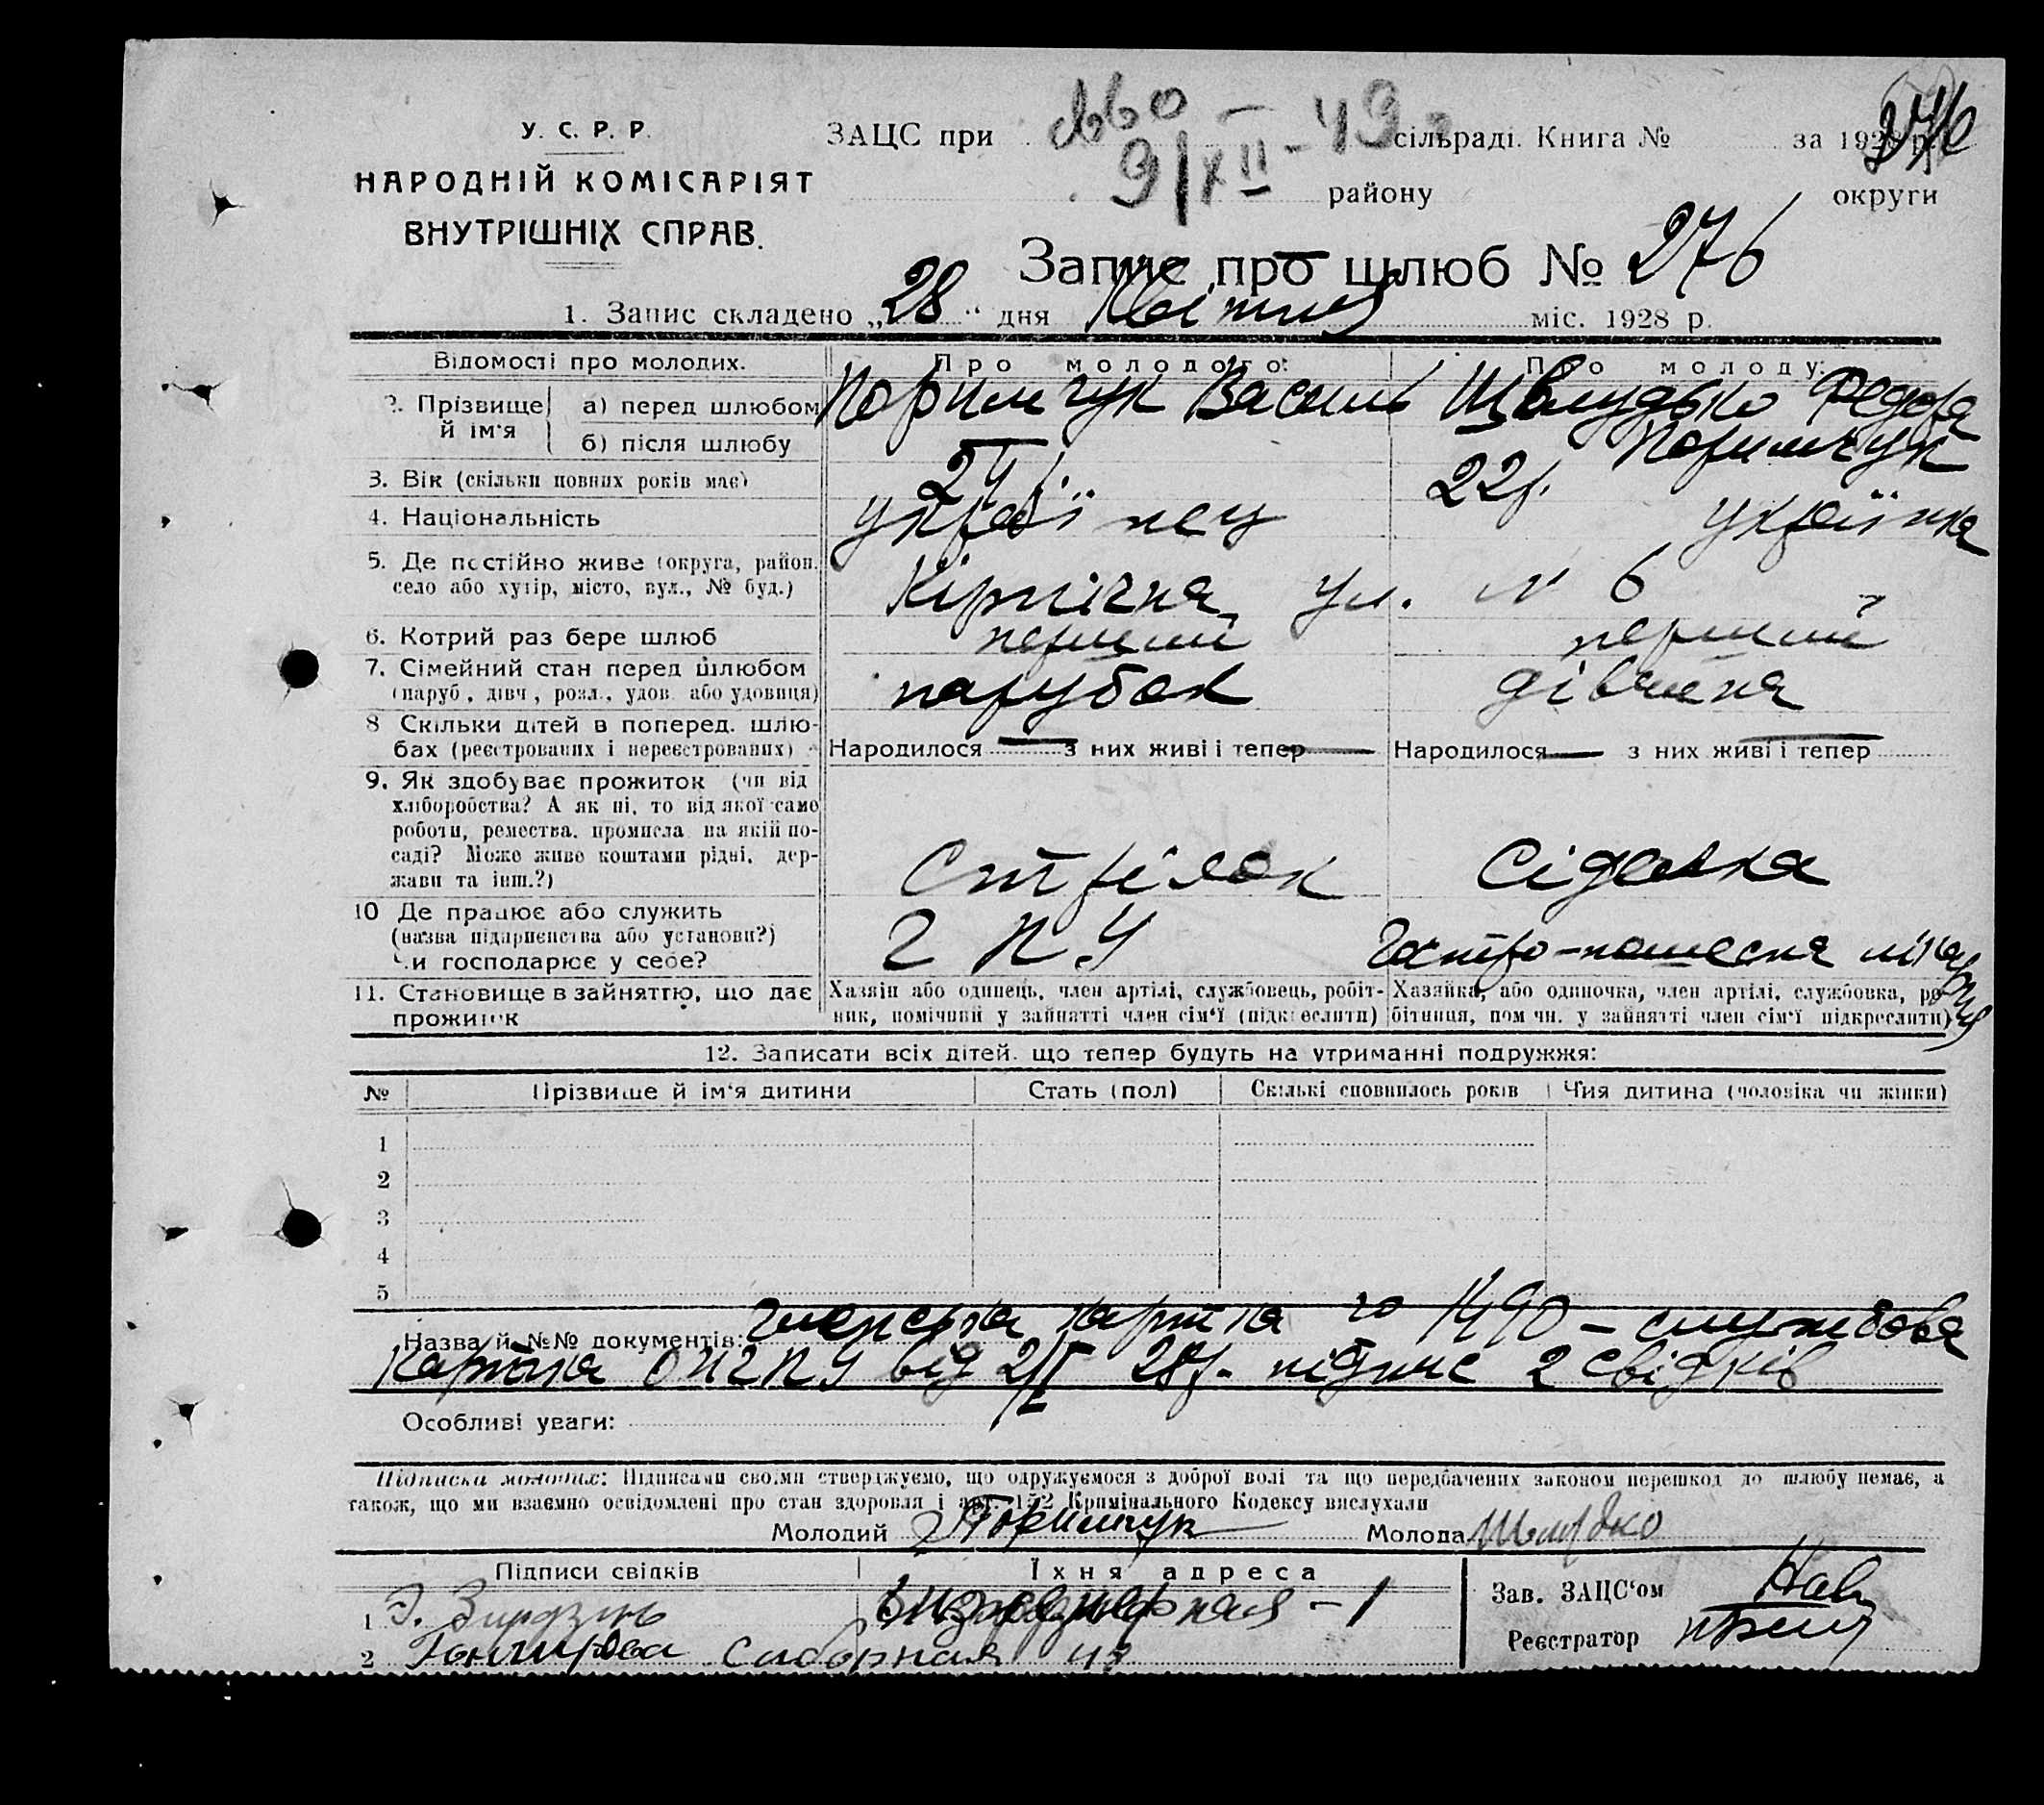 У. С. Р. Р.
НАРОДНІЙ КОМІСАРІЯТ
ВНУТРІШНІХ СПРАВ.
ЗАЦС при сільраді. Книга № за 1928 р.
9/XII - 49
району округи
276
Запис про шлюб № 276
1. Запис складено „28“ дня Квітня міс. 1928 р.
Відомості про молодих. Про молодого: Про молоду:
2. Прізвище й ім'я а) перед шлюбом Василь Федора
б) після шлюбу
3. Вік (скільки повних років має) 22р.
4. Національність українец українка
5. Де постійно живе (округа, район, село або хутір, місто, вул., № буд.) Кірпічна ул. № 6
6. Котрий раз бере шлюб перший перший
7. Сімейний стан перед шлюбом (паруб., дівч., розл., удов. або удовиця) парубок дівчина
8 Скільки дітей в поперед. шлюбах (реєстрованих і нереєстрованих) Народилося — з них живі і тепер — Народилося — з них живі і тепер —
9. Як здобуває прожиток (чи від
хліборобства? А як ні, то від якої само
роботи, ремества, промисла на якій по-
саді? Може живе коштами рідні, дер-
жави та інш.?) Стрілок Сідєлка
10 Де працює або служить
(назва підприємства або установи?)
Чи господарює у себе? Г П У лікарня
11. Становище в зайняттю, що дає прожиток
Хазяїн або одинець, член артілі, службовець, робіт-
ник, помічний у зайнятті член сім'ї (підкреслити)
Хазяйка, або одиночка, член артілі, службовка, ро-
бітниця, пом чн. у зайнятті член сім'ї підкреслити)
12. Записати всіх дітей, що тепер будуть на утриманні подружжя:
№ Прізвище й ім'я дитини Стать (пол) Скількі сповнилось років Чия дитина (чоловіка чи жінки)
1
2
3
4
5
Назва й №№ документів: Членська картка № 1490 – службова
картка ОПГПУ від 28р. підпис 2 свідків
Особливі уваги:
Підписка молодих: Підписами своїми стверджуємо, що одружуємося з доброї волі та що передбачених законом перешкод до шлюбу немає, а
також, що ми взаємно освідомлені про стан здоровля і арт. 152 Кримінального Кодексу вислухали
Молодий Молода
Підписи свідків Їхня адреса
1 – 1
2 Гончарова Саборная 43
Зав. ЗАЦС'ом
Реєстратор